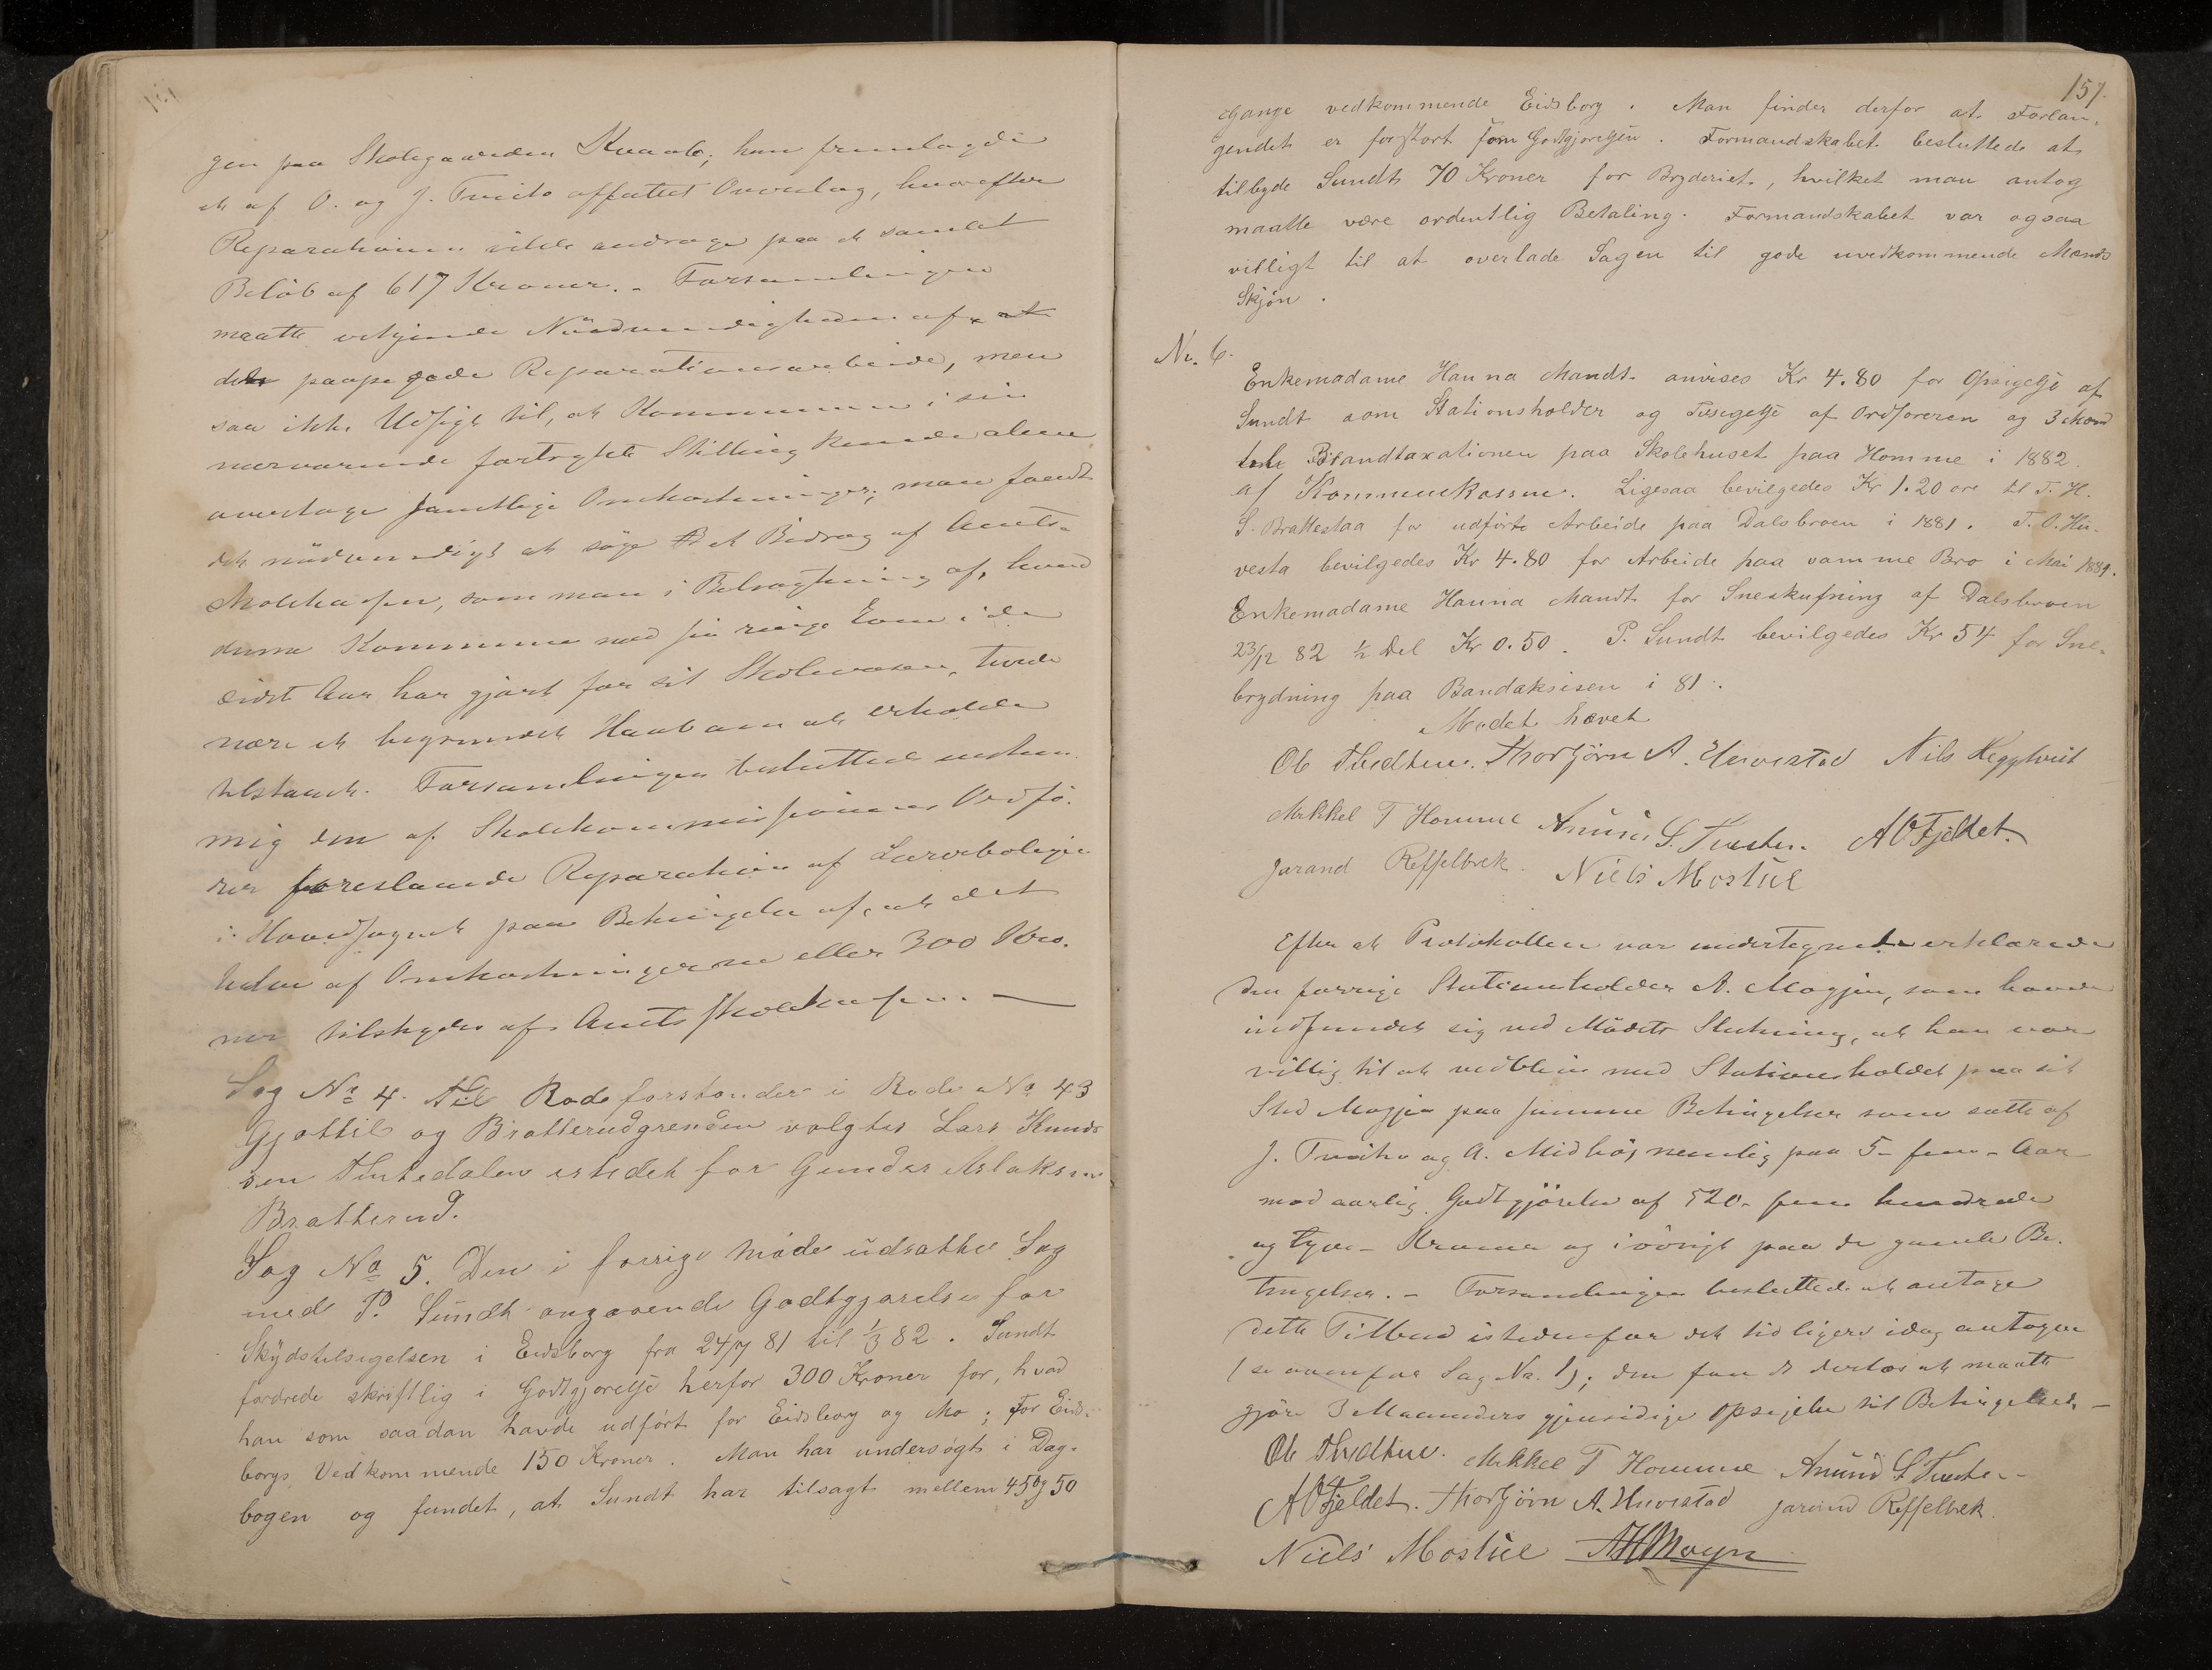 gen paa Skolegaarden Kvaale; han fremlagde
et af O. og J. Tveito affattet Overslag, hvorefter
Reparationen vilde andrage paa et samlet
Beløb af 617 Kroner. - Forsamlingen
maatte vel Nødvendigheden af at
det paapegede Reparationsarbeide, men
saa ikke Udsigt til, at Kommunen i sin
nærværende fortrykte Stilling kunde alene
overtage samtlige Omkostninger; man fandt
det nødvendigt at søge et Bidrag af Amts-
skolekassen, som man i Betragtning af, hvad
denne Kommune med sin ringe Evne i de
sidst Aar har gjort for sit Skolevæsen, turde
nære et begrundet Haab om at erholde
tilstaaet. Forsamlingen besluttede
mig den af Skolekommissionens Ordfø-
rer foreslaaede Reparation af Lærerboligen
i Hovedsognet paa Betingelse af, at det
halve af Omkostningerne eller 300 Kro-
ner tilskydes af Amtsskolekassen. —
Sag No 4. Til Rodeforstander i Rode No 43
Gjøttil og Bratterudgrenden valgtes Lars Knud-
sen istedet for Gunder Aslaksen
Bratterud.
Sag No 5. Den i forrige Møde udsatte Sag
med P. Sundt angaaende Godtgjørelse for
Skydstilsigelsen i Eidsborg fra 24/7 81 til 1/3 82. Sundt
fordrede skriftlig i Godtgjørelse herfor 300 Kroner for, hvad
han som saadan havde udført for Eidsborg og Mo; for Eids-
borgs Vedkommende 150 Kroner. Man har undersøgt i Dag-
bogen og fundet, at Sundt har tilsagt mellem 45 og 50
157.
Gange vedkommende Eidsborg. Man finder derfor at Forlan-
gendet er for stort som Godtgjørelsen. Formandskabet besluttede at
tilbyde Sundt 70 Kroner for Bryderiet, hvilket man antog
maatte være ordentlig Betaling. Formandskabet var ogsaa
villigt til at overlade Sagen til gode uvedkommende Mænds
Skjøn.
No. 6.
Enkemadame Hanna Mandt anvises Kr 4.80 for Opsigelse af
Sundt som Stationsholder og Tilsigelse af Ordføreren og 3 Mænd
Brandtaxationen paa Skolehuset paa Homme i 1882
af Kommunekassen. Ligesaa bevilgedes Kr 1.20 øre til T. H.
S. Brattestaa for udførte Arbeide paa Dalsbroen i 1881. T. O. Hu-
vesta bevilgedes Kr 4.80 for Arbeide paa samme Bro i Mai 1881.
Enkemadame Hanna Mandt for Sneskufning af Dalsbroen
23/12 82 ½ Del Kr 0.50. P. Sundt bevilgedes Kr 54 for Sne-
brydning paa Bandaksisen i 81.
Mødet hævet
Thorbjørn A. Huvestad Nils Heggtveit
Mikkel T Homme Anund S. Tveten. A O Fjeldet.
Jarand Refselbek. Niels Mostul
Efter at Protokollen var undertegnet erklærede
den forrige Stationsholder A. Mogjen, som havde
indfundet sig ved Mødets Slutning, at han var
villig til at vedblive med Stationsholdet paa sit
Sted Mogjen paa samme Betingelser som satte af
J. Tveito og A. Midbø, nemlig paa 5 - fem - Aar
mod aarlig Godtgjørelse af 520 - fem hundrede
og tyve - Kroner og iøvrigt paa de gamle Be-
tingelser. - Forsamlingen besluttede at antage
dette Tilbud istedenfor det tidligere idag antagne
(se ovenfor Sag No. 1); den fandt derhos at maatte
gjøre 3 Maaneders gjensidige Opsigelse til Betingelse. —
Mikkel T Homme Anund S Tveten
A O Fjeldet. Thorbjørn A. Huvestad Jarand Refselbek.
Niels Mostul